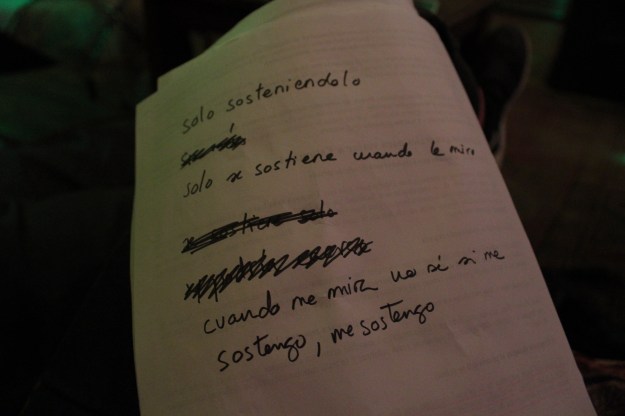 solo sosteniendolo
solo se sostiene cuando le miro
se sostiene solo
cuando me mira no sé si me
sostengo, me sostengo